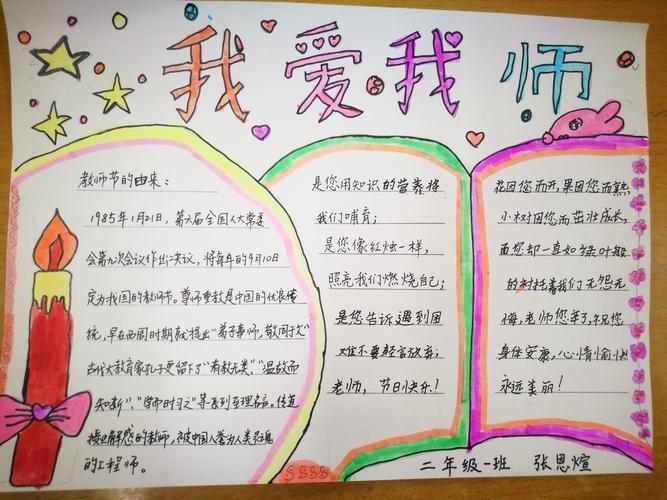 我爱我师
教师节的由来：
1985年1月21日，第六届全国人大常委
会第九次会议作出决议，将每年的9月10日
定为我国的教师节。尊师重教是中国的优良传
统，早在西周时期就提出“弟子事师，敬同于父”
古代大教育家孔子更留下了“有教无类”、“温故而
知新”、“学而时习之”等系列至理名言。传道
授业解惑的教师，被中国人誉为人类灵魂
的工程师。
是您用知识的营养将
我们哺育；
是您像红烛一样，
照亮我们燃烧自己；
是您告诉遇到困
难不要轻言放弃；
老师，节日快乐！
花因您而开，果因您而熟
小树因您而茁壮成长，
而您却一直如绿叶般
的衬托着我们无怨无
悔，老师您辛苦了，祝您
身体安康，心情愉快
永远美丽！
二年级一班 张恩煊